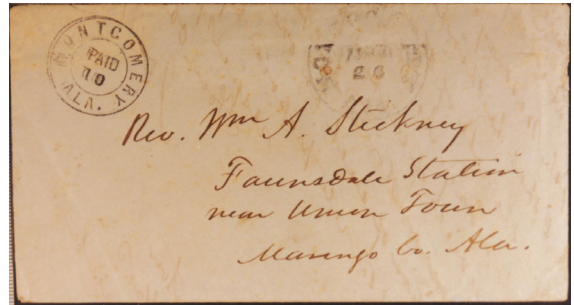 MONTGOMERY ALA.
PAID
10
26
Rev. Wm A. Stickney
Faunsdale Station
near Union Town
Marengo Co. Ala.